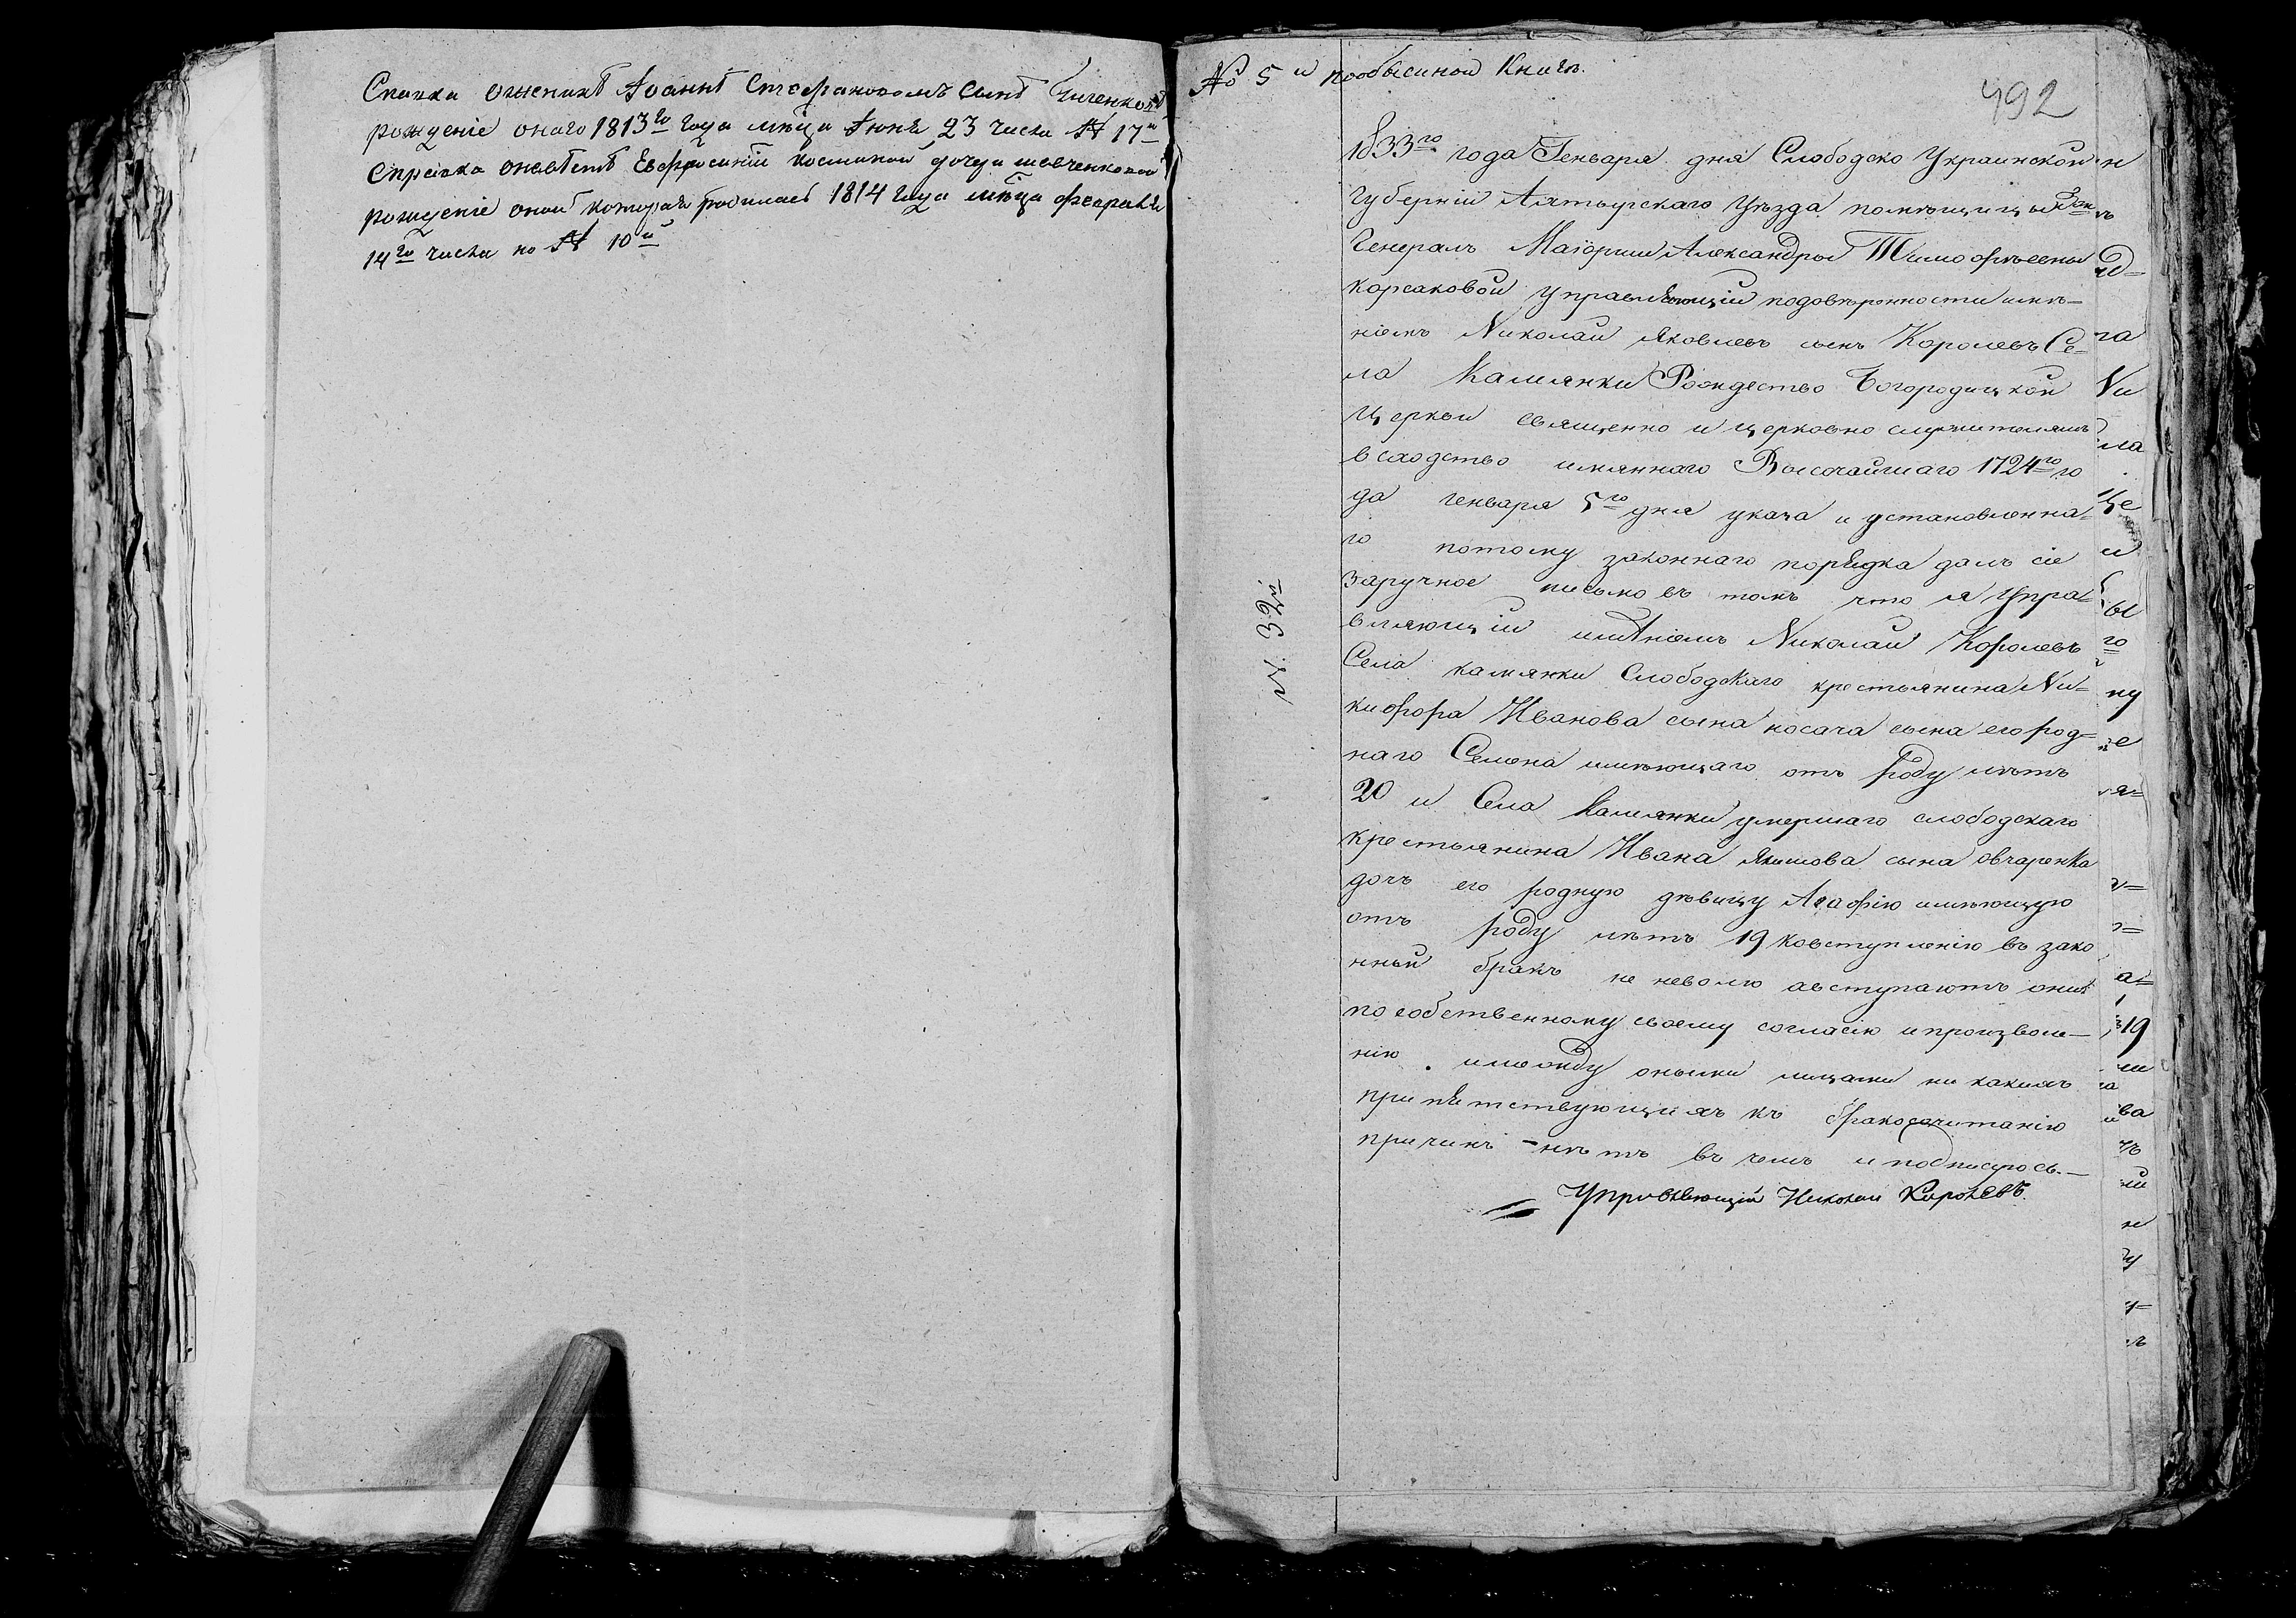 Справка о женихѣ Іоаннѣ Стефановомъ сынѣ
рожденіе онаго 1813го года мѣца Іюня 23 числа № 17й
Справка о невѣстѣ Евфросиніи Косминой дочери шевченковой
рожденіе оной которая родилась 1814 года мѣца февраля
14го числа по № 10й
№ 5й пообыскной Книги.
492
1833го года Генваря дня Слободско Украинской
губерніи Ахтырскаго уѣзда помѣщицы
Генералъ Маіорши Александры Тимофѣевны
корсаковой управляющій подовѣренности имѣ-
ніемъ Николай Яковлевъ сынъ Королевъ Се-
ла Камянки Рождество Богородицкой
церкви священно и церковно служителямъ
всходство имяннаго Высочайшаго 1724го го
да генваря 5го дня указа и установленна-
го потому законнаго порядка далъ сіе
заручное письмо въ томъ что я Упра-
вляющій имѣніемъ Николай Королевъ
Села камянки Слободскаго крестьянина Ни-
кифора Иванова сына косача сына его род-
наго Семена имѣющаго отъ роду лѣтъ
20 и Села Камянки умершаго слободскаго
крестьянина Ивана Якимова сына овчаренка
дочь его родную дѣвицу Агафію имѣющую
отъ роду лѣтъ 19 ковступленію въ зако
нный бракъ не неволю авступаютъ они
по собственному своему согласію и произволе-
нію. имежду оными лицами ни какихъ
припятствующихъ къ бракосочитанію
причинъ - нѣтъ въ чемъ и подписуюсь.-
Управляющій Николай Королевъ.
№ 32й